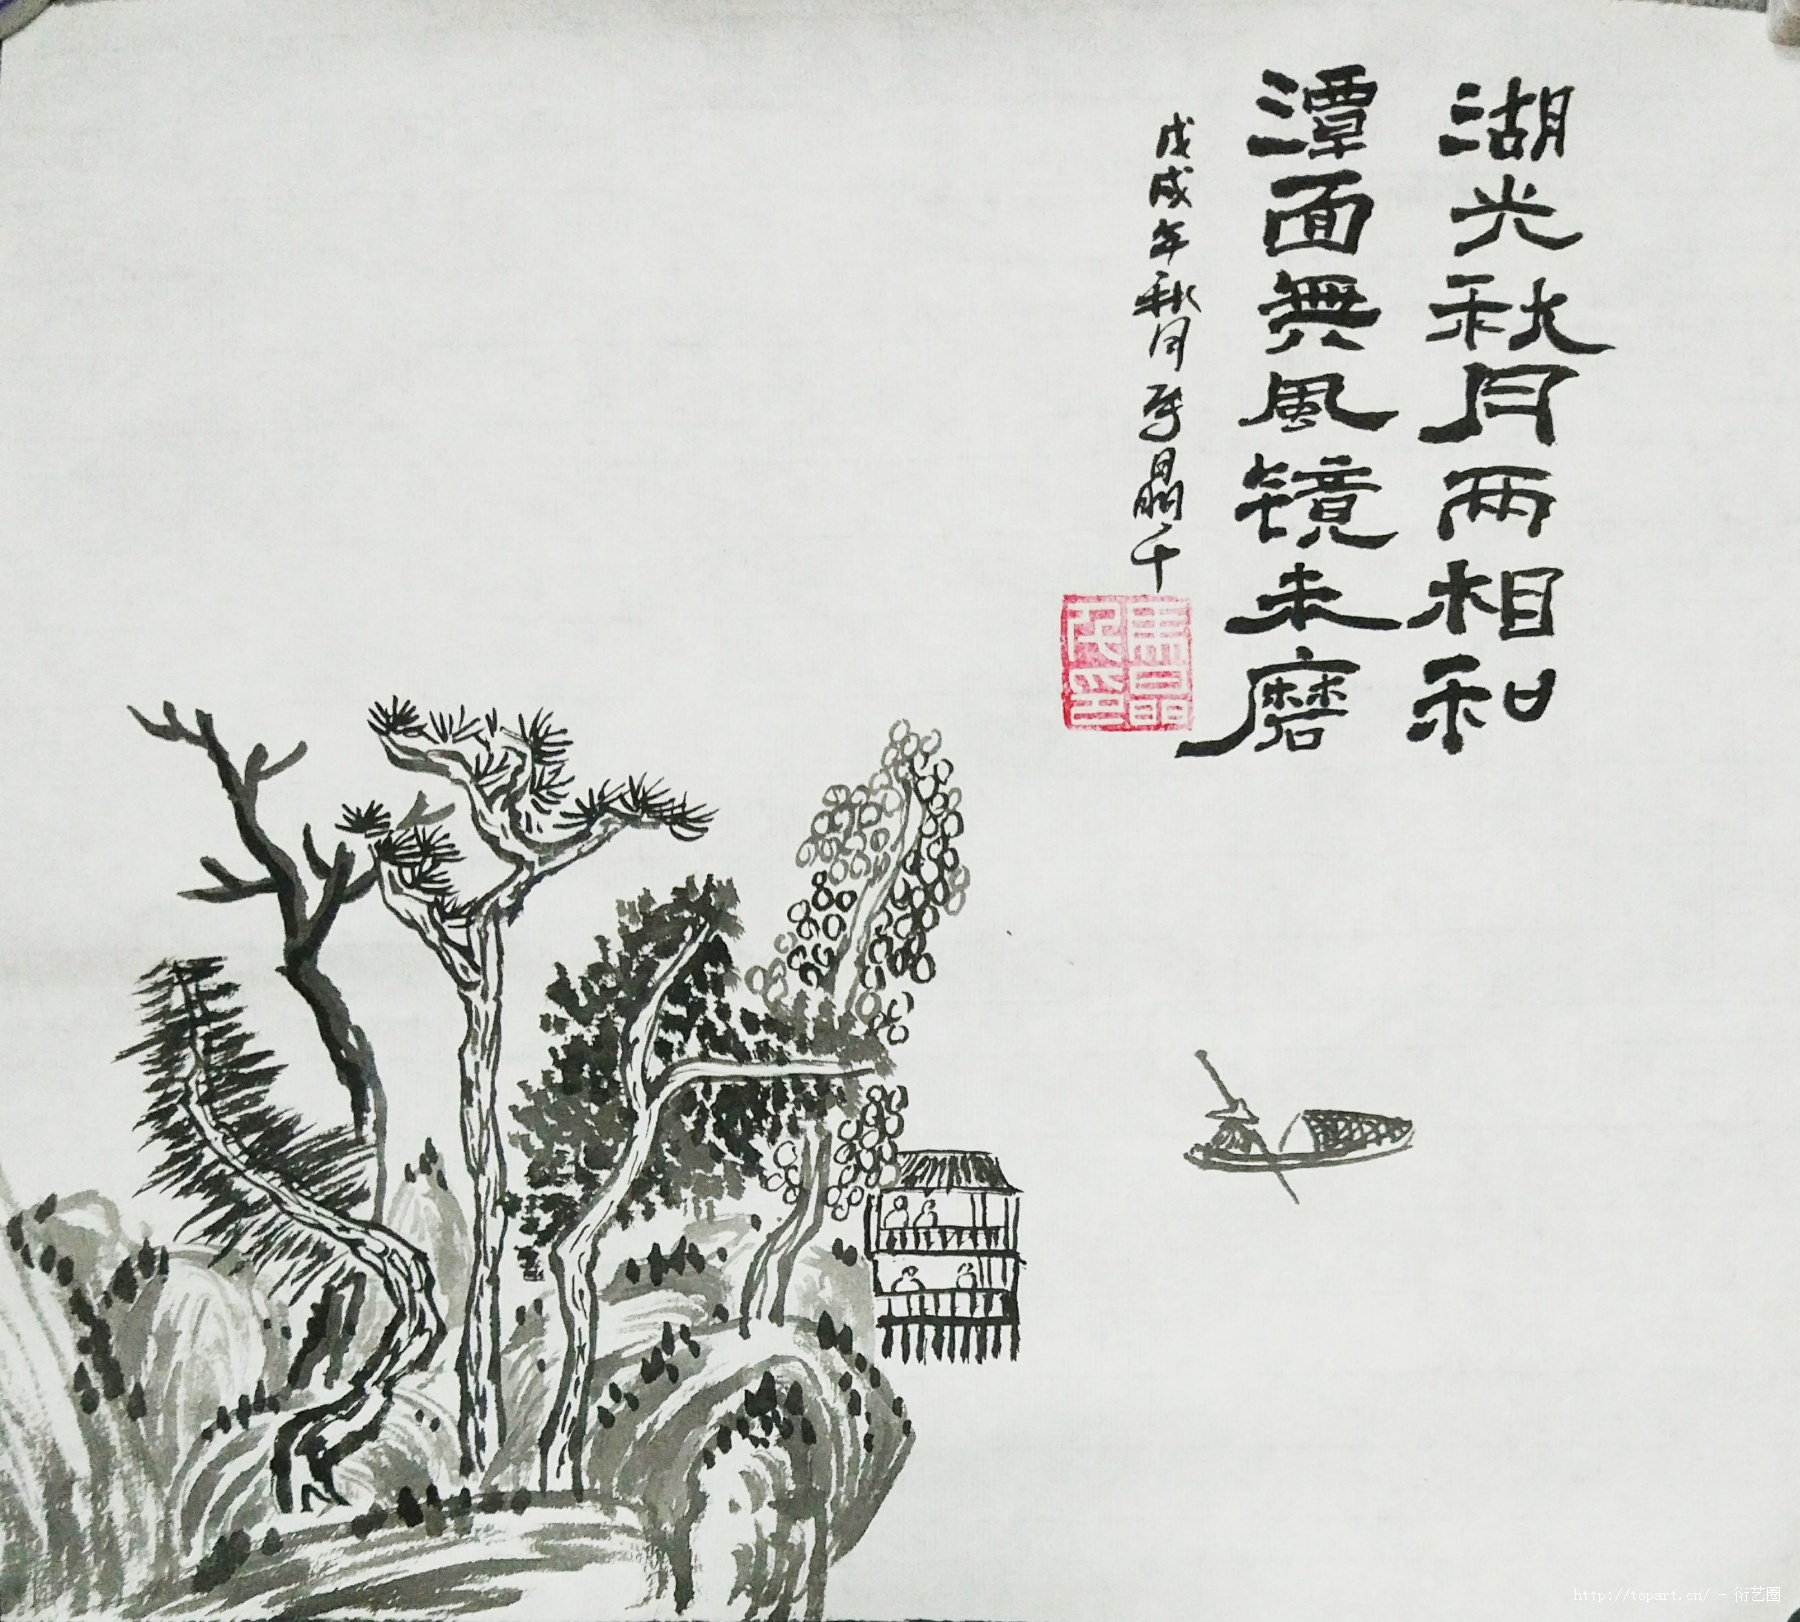 湖光秋月两相和
潭面無風镜未磨
戊戌年秋月晶
馬晶
印
http://topart.cn/ - 衍艺圈